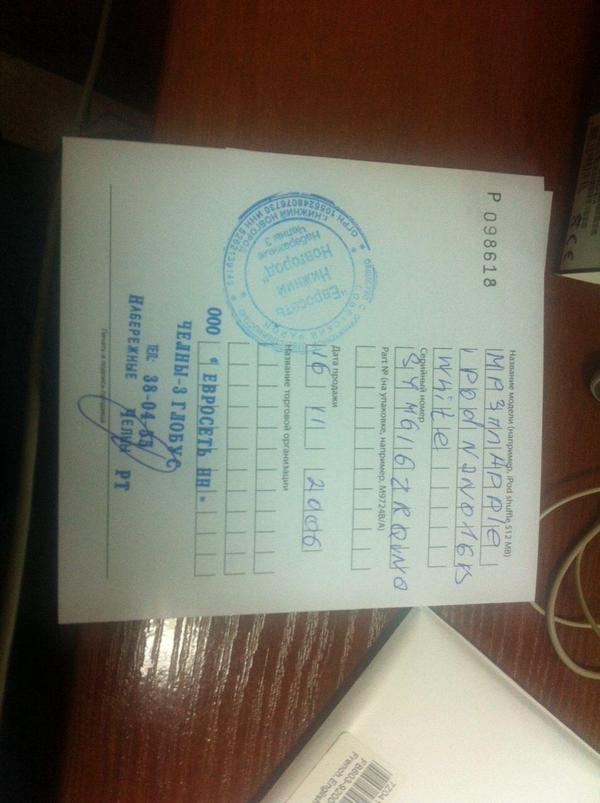 P 098618
Название модели (например, iPod shuffle 512 MB)
MP3ПЛ APPLE
IPOD NANO 1GB
WHITE
Серийный номер
Part № (на упаковке, например, M9724B/A)
Дата продажи
16 11 2006
Название торговой организации
ООО "ЕВРОСЕТЬ НН"
ЧЕЛНЫ-3 ГЛОБУС
ТЕЛ: 38-04-83
НАБЕРЕЖНЫЕ ЧЕЛНЫ РТ
Печать и подпись
"Евросеть
Нижний
Новгород"
Набережные
Челны 3
Г.НИЖНИЙ НОВГОРОД
French, English